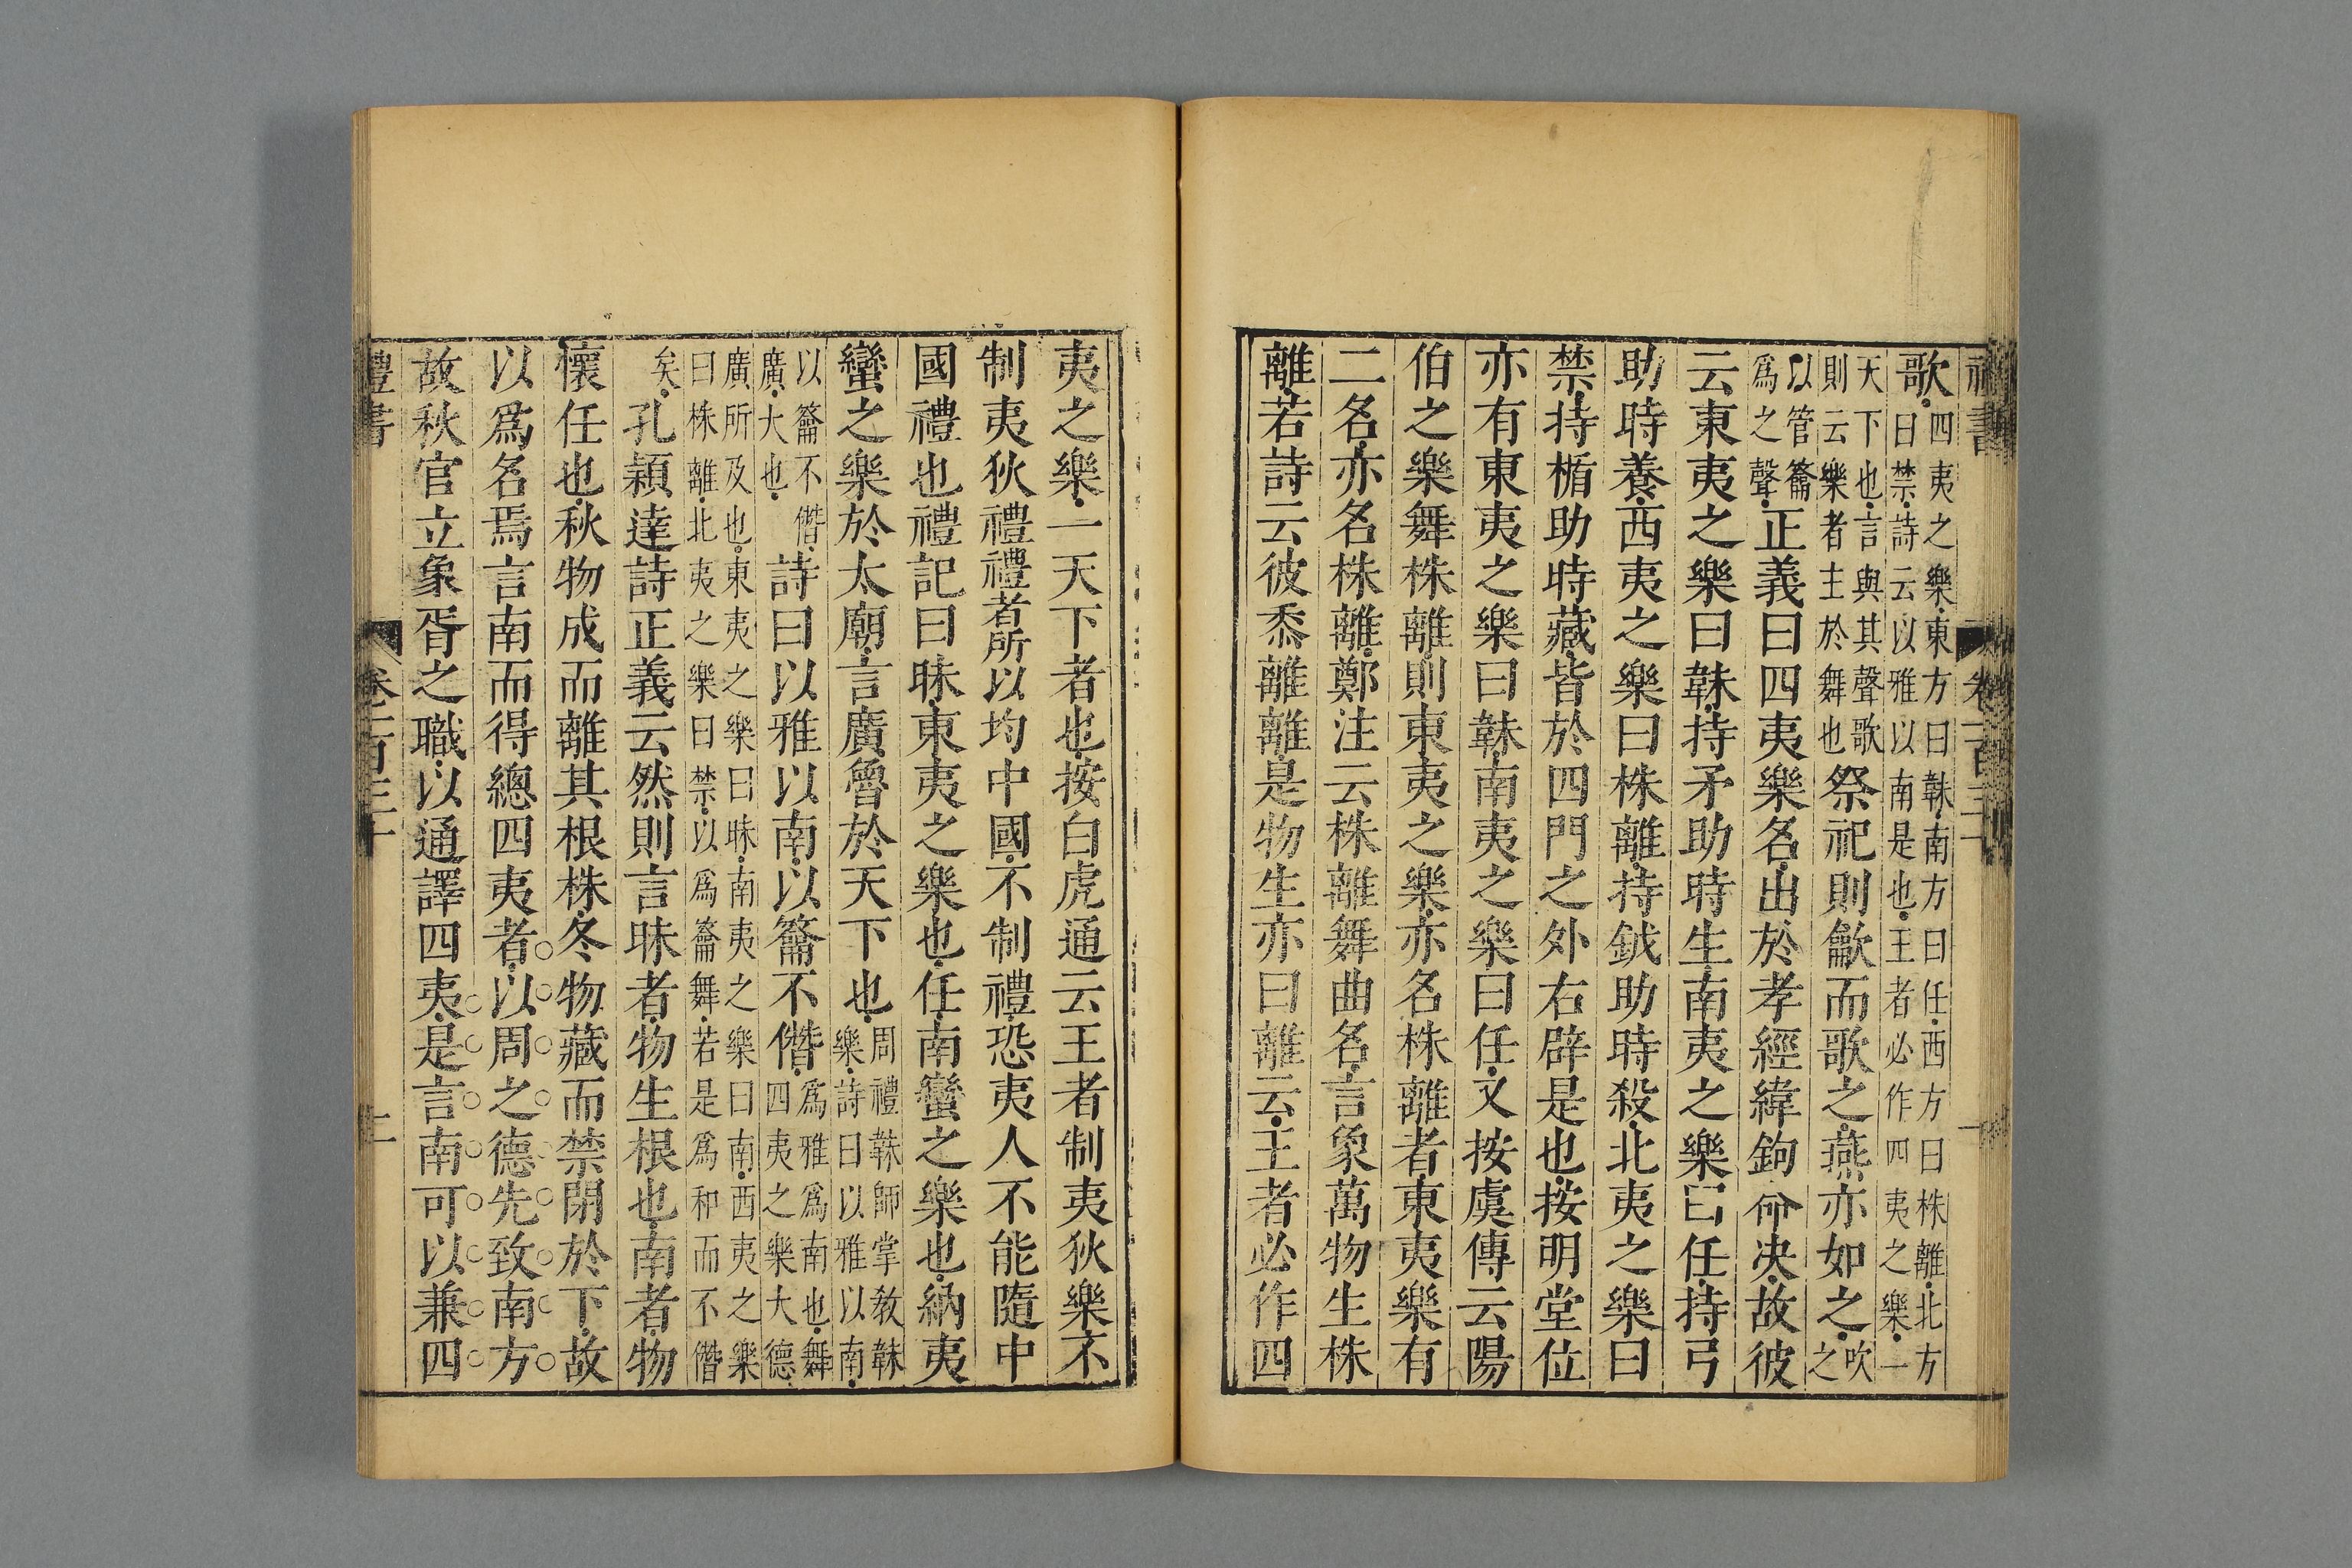 歌四夷之樂東方曰韎南方曰任西方曰株離北方曰禁詩云以雅以南是也王者必作四夷之樂一
天下也言與其聲歌則云樂者主於舞也祭祀則龡而歌之燕亦如之吹之
以管籥爲之聲正義曰四夷樂名出於孝經緯鉤命决故彼
云東夷之樂曰韎持矛助時生南夷之樂曰任持弓
助時養西夷之樂曰株離持鉞助時殺北夷之樂曰
禁持楯助時藏皆於四門之外右辟是也按明堂位
亦有東夷之樂曰韎南夷之樂曰任又按虞傳云陽
伯之樂舞株離則東夷之樂亦名株離者東夷樂有
二名亦名株離鄭注云株離舞曲名言象萬物生株
離若詩云彼黍離離是物生亦曰離云王者必作四
夷之樂一天下者也按白虎通云王者制夷狄樂不
制夷狄禮禮者所以均中國不制禮恐夷人不能隨中
國禮也禮記曰昧東夷之樂也任南蠻之樂也納夷
蠻之樂於太廟言廣魯於天下也周禮韎師掌教韎樂詩曰以雅以南
以籥不僭廣大也詩曰以雅以南以籥不僭爲雅爲南也舞四夷之樂大德
廣所及也東夷之樂曰昧南夷之樂曰南西夷之樂曰株離北夷之樂曰禁以爲籥舞若是爲和而不僭
矣孔穎達詩正義云然則言昧者物生根也南者物
懷任也秋物成而離其根株冬物藏而禁閉於下故
以爲名焉言南而得總四夷者以周之德先致南方
故秋官立象胥之職以通譯四夷是言南可以兼四
禮書 卷一百三十